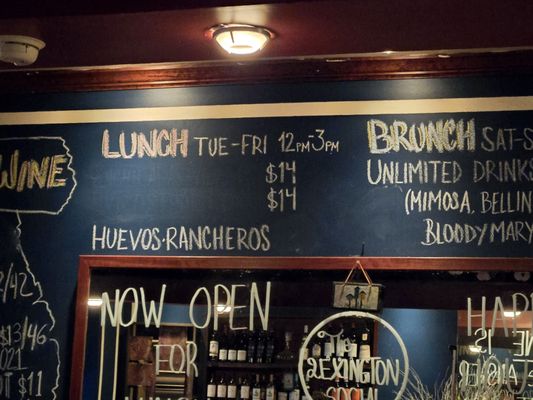 WINE
LUNCH TUE-FRI 12PM-3PM
$14
$14
HUEVOS RANCHEROS
BRUNCH SAT-S
UNLIMITED DRINKS
(MIMOSA, BELLIN
BLOODY MARY
/42
$13/46
$11
NOW OPEN
FOR
The
LEXINGTON
SOCIAL
HAPP